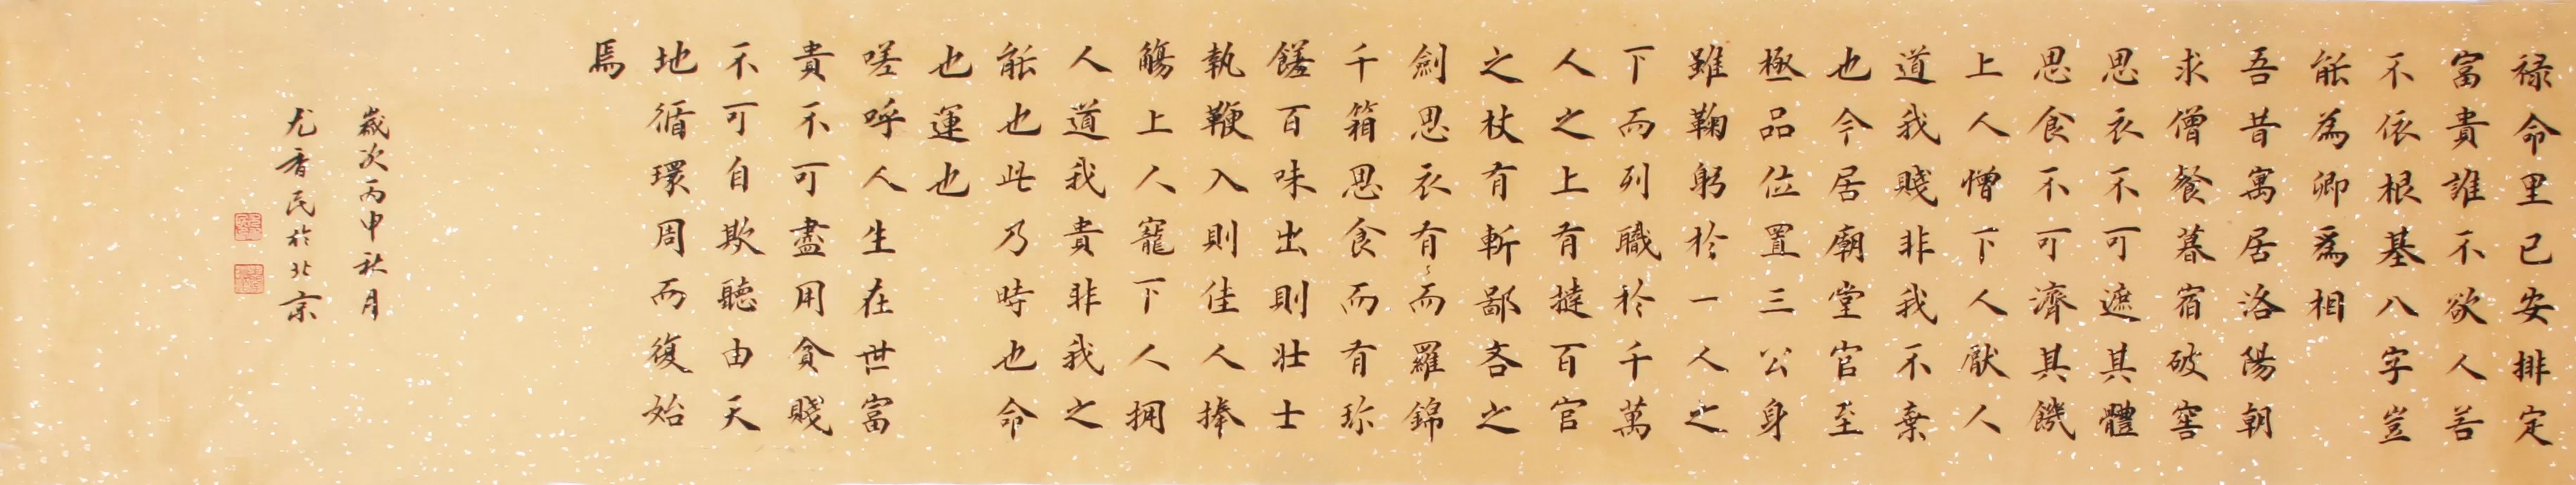 禄命里已安排定
富貴誰不欲人若
不依根基八字豈
能為卿為相
吾昔寓居洛陽朝
求僧餐暮宿破窖
思衣不可遮其體
思食不可濟其饑
上人憎下人厭人
道我賤非我不棄
也今居廟堂官至
極品位置三公身
雖鞠躬於一人之
下而列職於千萬
人之上有撻百官
之杖有斬鄙吝之
劍思衣有而羅錦
千箱思食而有珎
饈百味出則壯士
執鞭入則佳人捧
觴上人寵下人拥
人道我貴非我之
能也此乃時也命
也運也
嗟呼人生在世富
貴不可盡用貧賤
不可自欺聽由天
地循環周而復始
焉
歲次丙申秋月
尤香民於北京